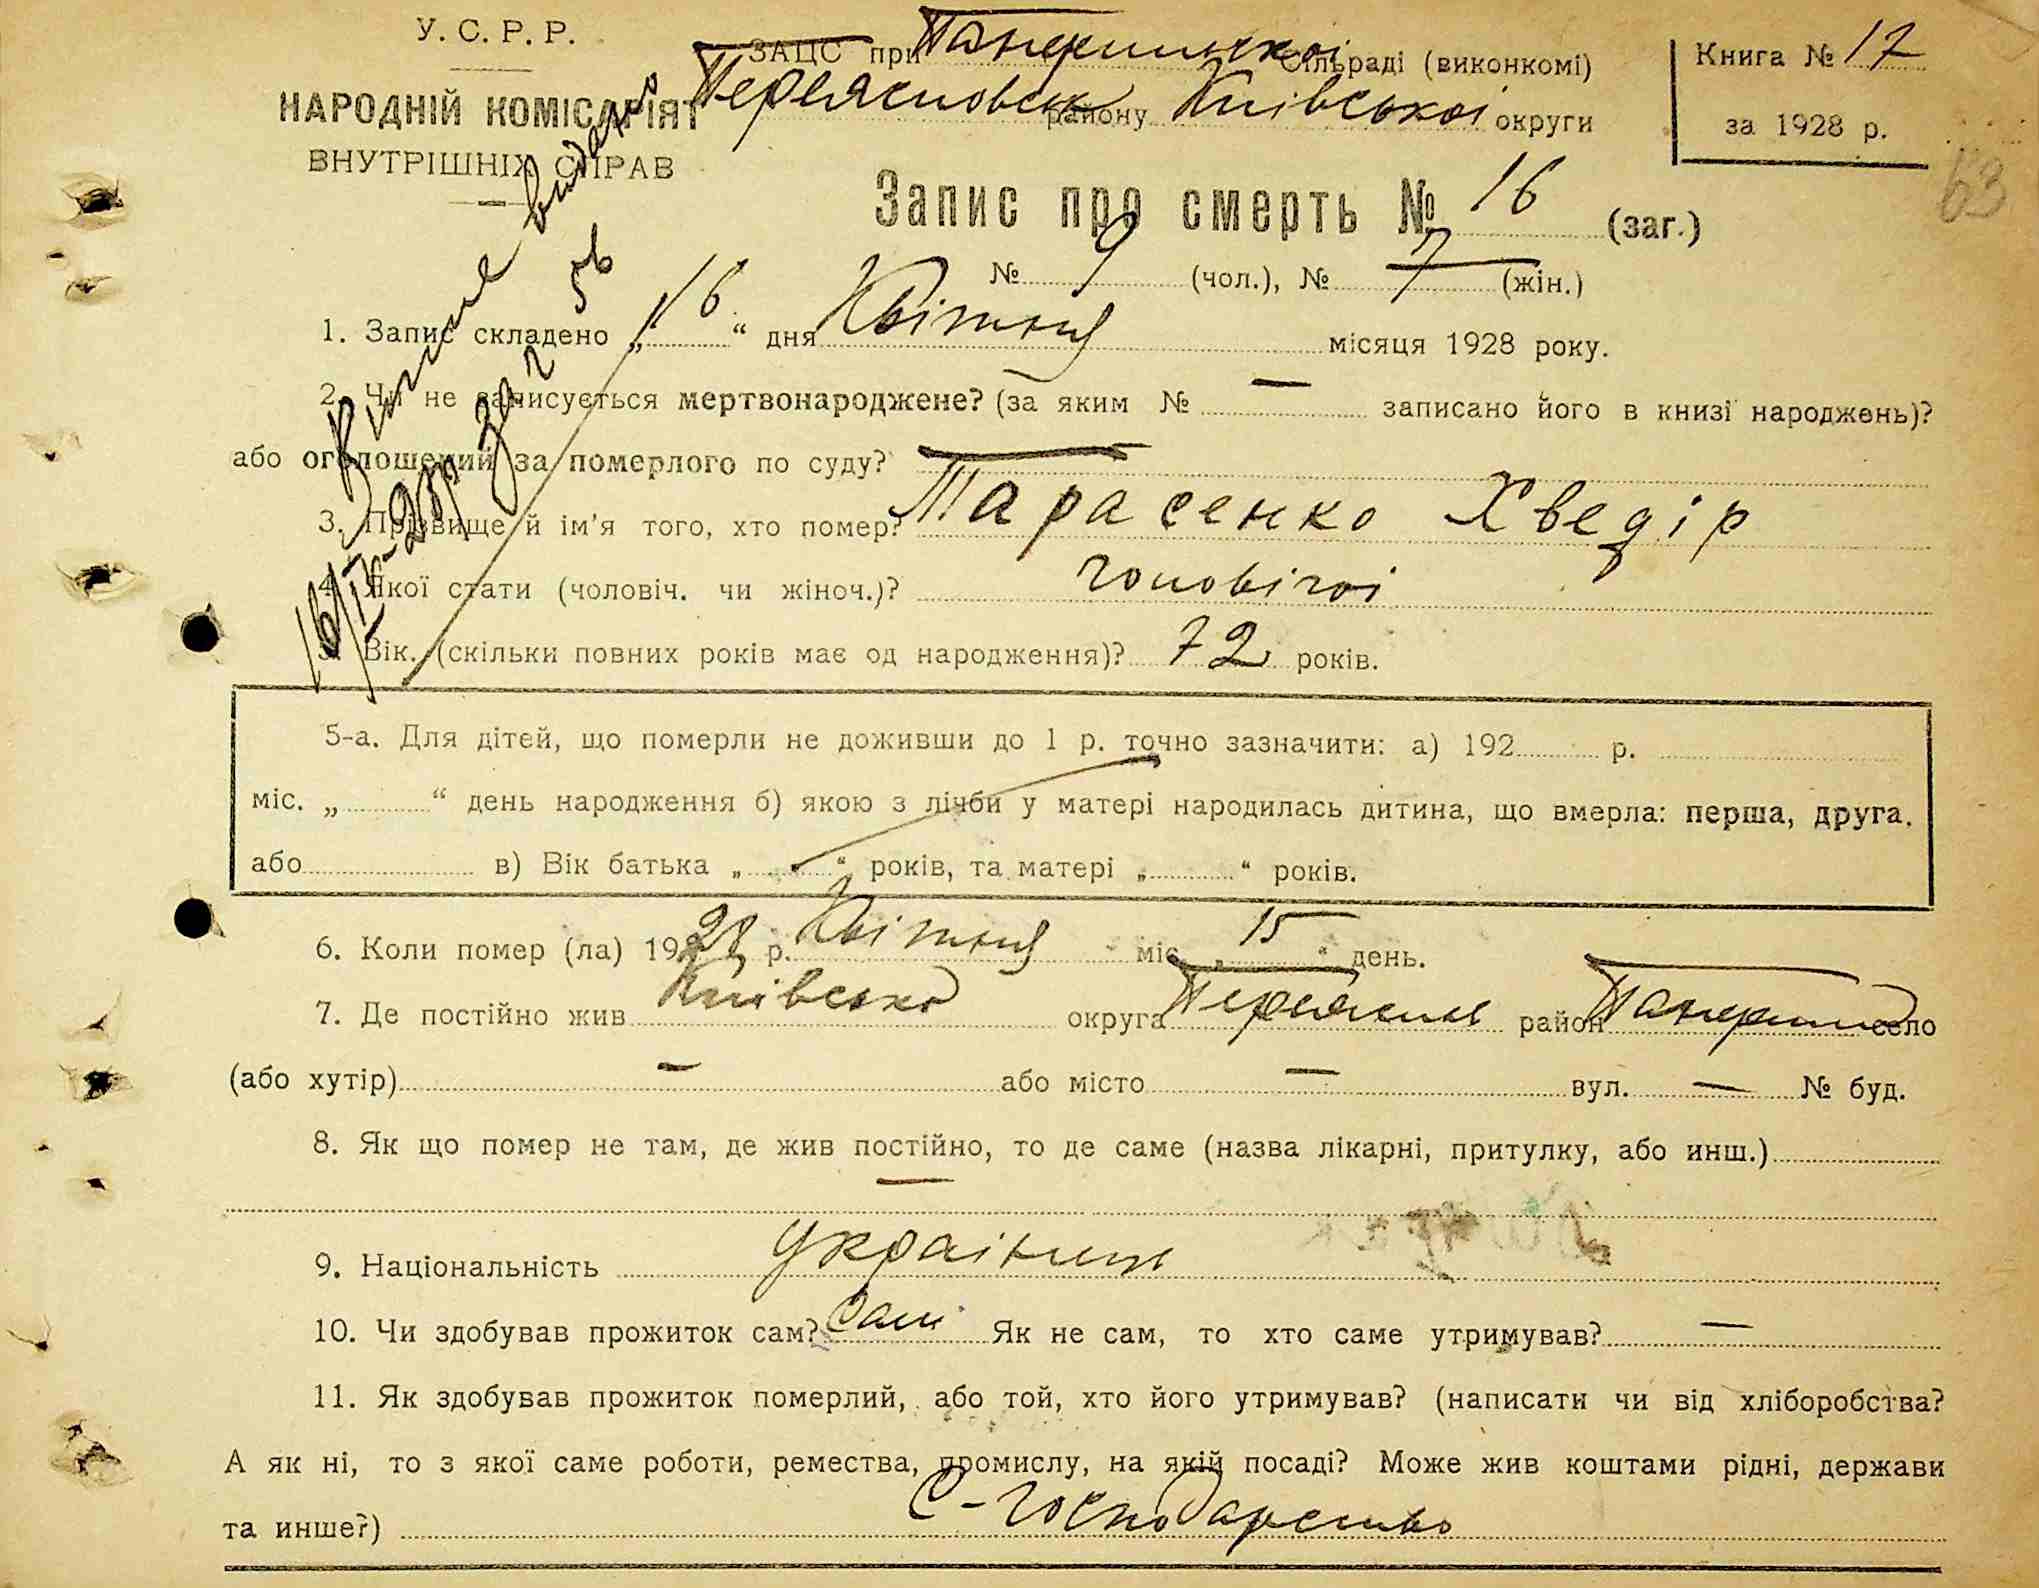 У. С. Р. Р.
НАРОДНІЙ КОМІСАРІЯТ
ВНУТРІШНІХ СПРАВ
ЗАЦС при Сільраді (виконкомі)
району Київської округи
Книга № 17
за 1928 р.
63
Запис про смерть № 16 (заг.)
№ 9 (чол.), № 7 (жін.)
1. Запис складено „16“ дня Квітня місяця 1928 року.
2. Чи не записується мертвонароджене? (за яким № — записано його в книзі народжень)?
або оголошений за померлого по суду? —
3. Прізвище й ім'я того, хто помер? Тарасенко Хведір
4. Якої стати (чоловіч. чи жіноч.)? чоловічоі
5. Вік. (скільки повних років має од народження)? 72 років.
5-а. Для дітей, що померли не доживши до 1 р. точно зазначити: а) 192 р.
міс. „ “ день народження б) якою з лічби у матері народилась дитина, що вмерла: перша, друга,
або в) Вік батька „ “ років, та матері „ “ років.
6. Коли помер (ла) 1928 р. Квітня міс. „15“ день.
7. Де постійно жив Київська округа район село
(або хутір) — або місто — вул. — № буд.
8. Як що помер не там, де жив постійно, то де саме (назва лікарні, притулку, або инш.)
—
9. Національність українець
10. Чи здобував прожиток сам? Сам Як не сам, то хто саме утримував? —
11. Як здобував прожиток померлий, або той, хто його утримував? (написати чи від хліборобства?
А як ні, то з якої саме роботи, ремества, промислу, на якій посаді? Може жив коштами рідні, держави
та инше?) С-господарство